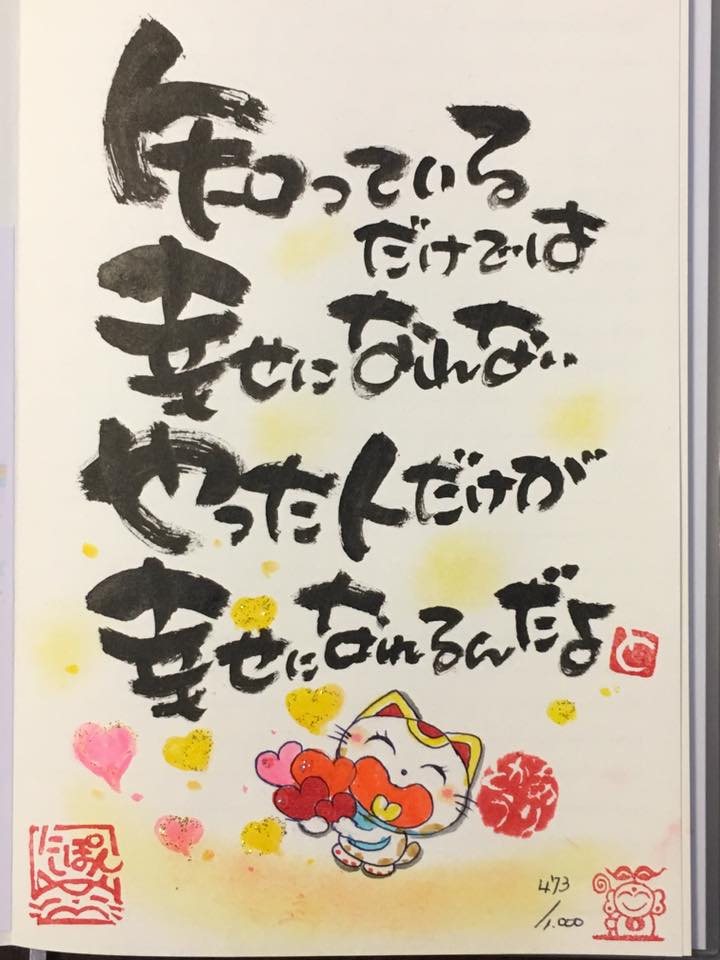 知っている
だけでは
幸せになれない
やった人だけが
幸せになれるんだよ
にしぽん
473
/1.000